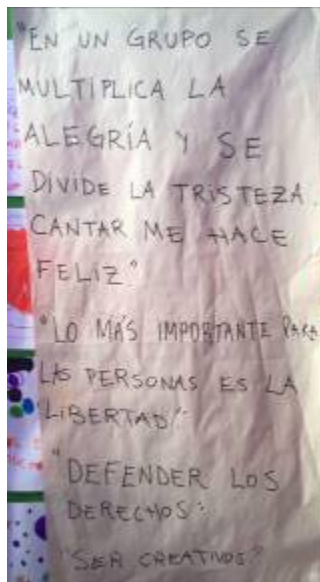 "EN UN GRUPO SE
MULTIPLICA LA
ALEGRÍA Y SE
DIVIDE LA TRISTEZA.
CANTAR ME HACE
FELIZ"
"LO MÁS IMPORTANTE PARA
LAS PERSONAS ES LA
LIBERTAD".
"DEFENDER LOS
DERECHOS".
"SER CREATIVOS"